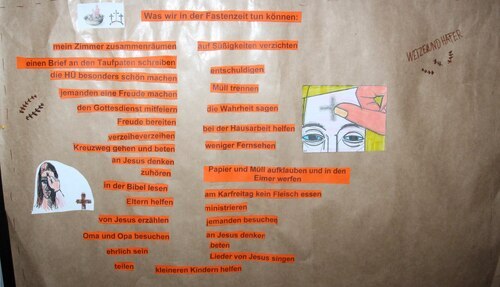 Was wir in der Fastenzeit tun können:
mein Zimmer zusammenräumen
einen Brief an den Taufpaten schreiben
die HÜ besonders schön machen
jemanden eine Freude machen
den Gottesdienst mitfeiern
Freude bereiten
verzeiheverzeihen
Kreuzweg gehen und beten
an Jesus denken
zuhören
in der Bibel lesen
Eltern helfen
von Jesus erzählen
Oma und Opa besuchen
ehrlich sein
teilen
auf Süßigkeiten verzichten
entschuldigen
Müll trennen
die Wahrheit sagen
bei der Hausarbeit helfen
weniger Fernsehen
Papier und Müll aufklauben und in den
Eimer werfen
am Karfreitag kein Fleisch essen
ministrieren
jemanden besuchen
an Jesus denken
beten
Lieder von Jesus singen
kleineren Kindern helfen
WEIZEN UND HAFER